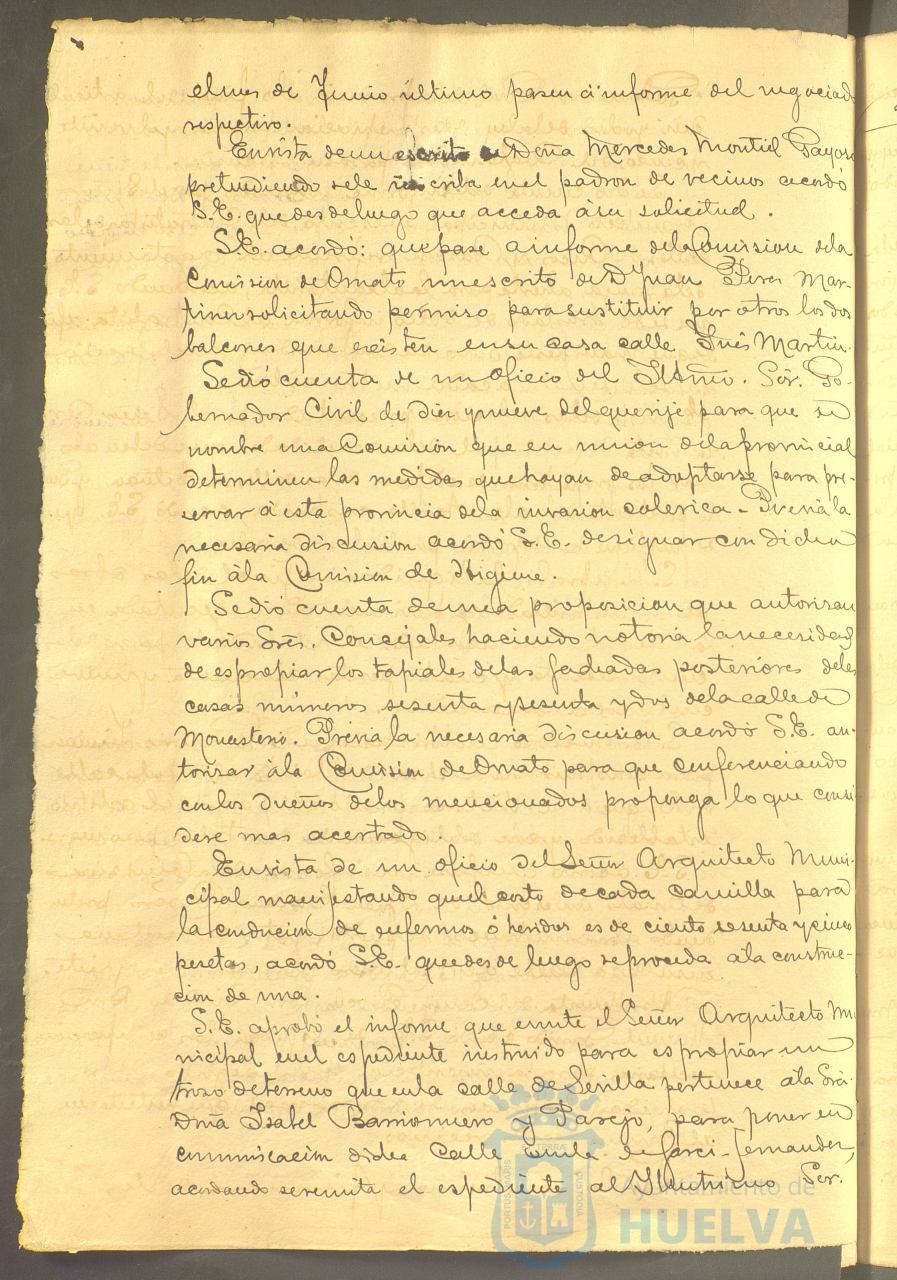 el mes de Junio último pasen á informe del negociado
respectivo.
En vista de un escrito de Doña Mercedes Montiel Gayoso
pretendiendo se le inscriba en el padron de vecinos acordó
S.E. que desde luego que acceda á su solicitud.
S.E. acordó: que pase a informe de la Comision de la
Comision de Ornato un escrito de D. Juan Perez Mar-
tinez solicitando permiso para sustituir por otros los dos
balcones que existen en su casa calle Inés Martin.
Se dió cuenta de un oficio del Iltmo. Sór. Go-
bernador Civil de diez y nueve del que rije para que se
nombre una Comision que en union de la provincial
determinen las medidas que hayan de adoptarse para pre-
servar á esta provincia de la invasion colerica - Previa la
necesaria discusion acordó S.E. designar con dicho
fin á la Comision de Higiene.
Se dió cuenta de una proposicion que autorizan
varios Sres. Concejales haciendo notoria la necesidad
de espropiar los tapiales de las fachadas posteriores de las
casas números sesenta y sesenta y dos de la calle de
Monasterio. Previa la necesaria discusion acordó S.E. au-
torizar á la Comision de Ornato para que conferenciando
con los dueños de los mencionados proponga lo que consi-
dere mas acertado.
En vista de un oficio del Señor Arquitecto Muni-
cipal manifestando que el costo de cada camilla para
la conducion de enfermos ó heridos es de ciento sesenta y cinco
pesetas, acordó S.E. que desde luego se proceda á la construc-
cion de una.
S.E. aprobó el informe que emite el Señor Arquitecto Mu
nicipal en el espediente instruido para espropiar un
trozo de terreno que en la calle de Sevilla pertenece á la Sra.
Doña Isabel Barrionuevo y Parejo, para poner en
comunicacion dicha calle con la de Garci-Fernandez,
acordando se remita el espediente al Ilustrisimo Sor.
Ayuntamiento de
HUELVA
PORTUS MARIS
ET TERRÆ
CUSTODIA